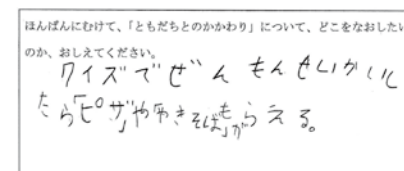 ほんばんにむけて、「ともだちとのかかわり」について、どこをなおしたい
のか、おしえてください。
クイズでぜんもんせいかいし
たら「ピザ」や「やきそば」がもらえる。